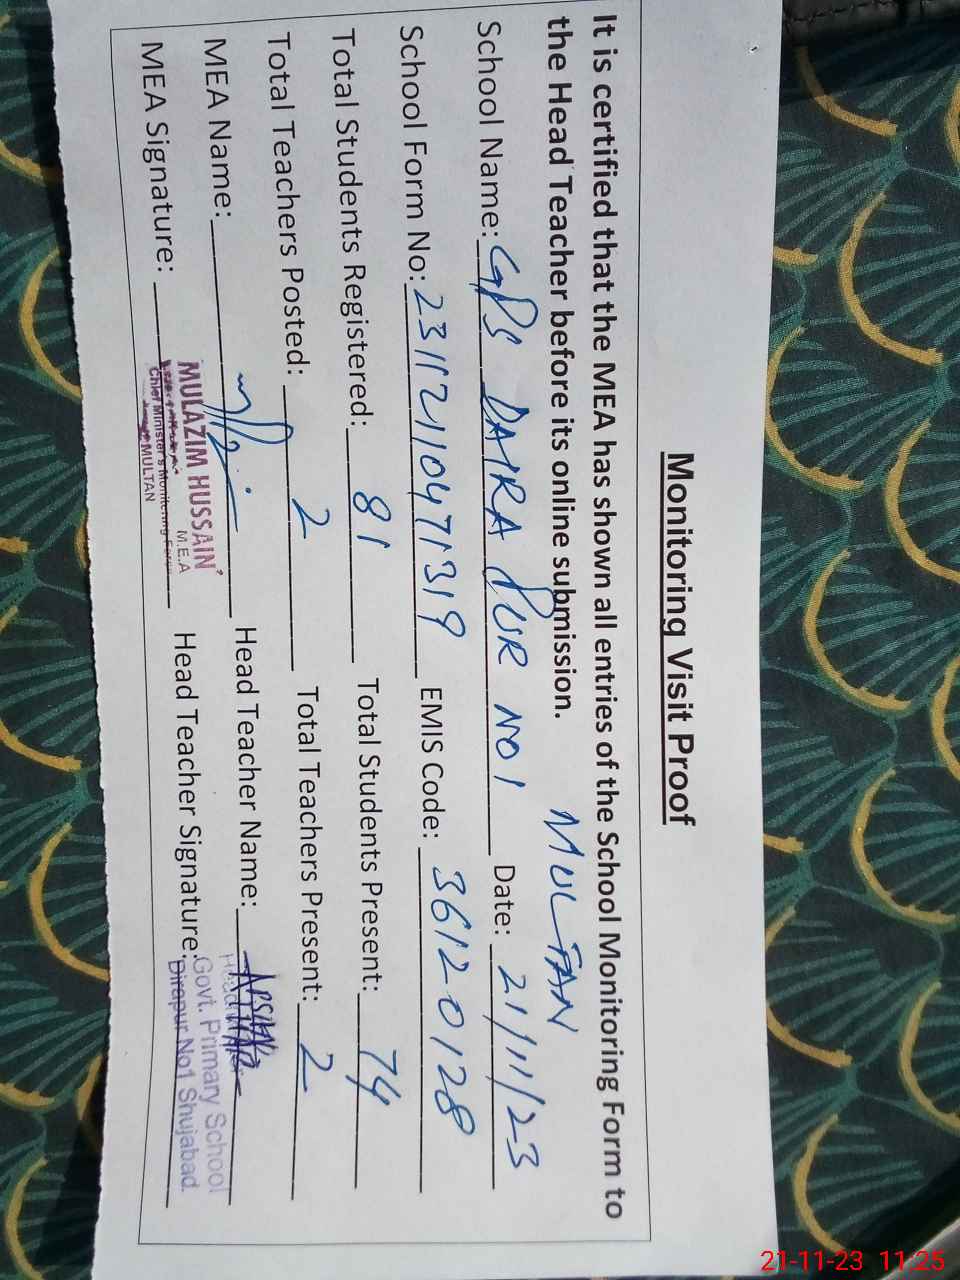 Monitoring Visit Proof
It is certified that the MEA has shown all entries of the School Monitoring Form to
the Head Teacher before its online submission. MULTAN
School Name: GPS DAIRA PUR NO1 Date: 21/11/23
School Form No: 23112110471319 EMIS Code: 36120128
Total Students Registered: 81 Total Students Present: 74
Total Teachers Posted: 2 Total Teachers Present: 2
MEA Name: Head Teacher Name:
MULAZIM HUSSAIN
M.E.A
Chief Minister's Monitoring Force
MULTAN
MEA Signature: Head Teacher Signature:
Govt. Primary School
Dirapur No1 Shujabad.
21-11-23 11:25